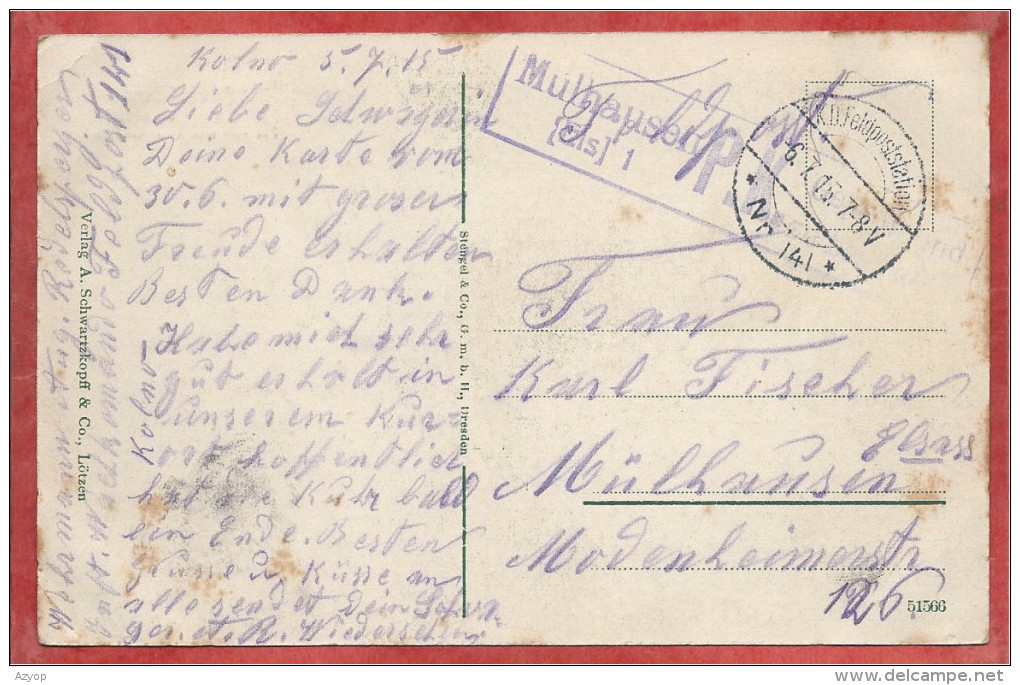 Kolno 5.7.15
Liebe Schwägerin
Deine Karte vom
30.6. mit groser
Freude erhalten
Besten Dank.
Habe mich sehr
gut erholt in
unserem Kur-
ort hoffentlich
hat die Kuhr bald
ein Ende. Besten
Grüsse u. Küsse an
alle sendet Dein Schwa-
ger. A. R. Wiedersehen
Kolno
Feldpost 141
Verlag A. Schwartzkopff & Co., Lötzen
Stengel & Co., G. m. b. H., Dresden
Mülhausen
[Els] 1
K.D. Feldpoststation
-6.7.15. 7-8 V
* Nr. 141 *
Frau
Karl Fischer
Mülhausen
Elsass
Modenheimerstr
126
51566
Azyop
delcampe.net